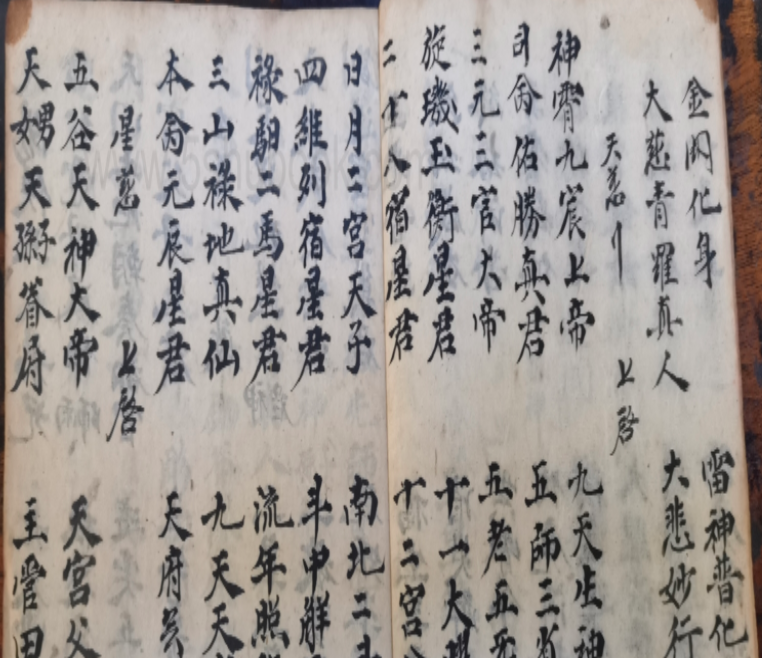 金闕化身 雷神普化
大慈青羅真人 大悲妙行
天慈 上啓
神霄九宸上帝 九天生神
司命佑勝真君 五師三
三元三官大帝 五老五
旋璣玉衡星君 十一大
二十八宿星君 十二宮
日月二宮天子 南北二
四維列宿星君 斗中解
祿馹二馬星君 流年照
三山祿地真仙 九天天
本命元辰星君 天府
星慈 上啓
五谷天神大帝 天宮父
天娚天孫眷府 主管田